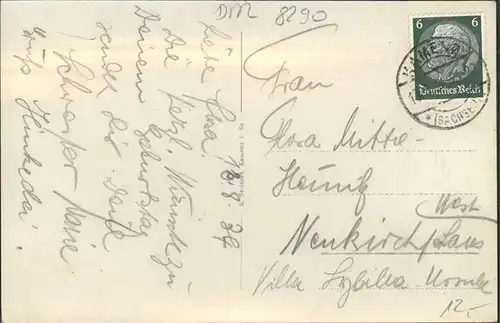 DM 8290
Liebe Rosa. 18.8.39
Die herzl. Wünsche zu
Deinem Geburtstag
sendet Dir Deine
Schwester Marie.
Gruß
6 6
Deutsches Reich
KAMENZ
(SACHSEN)
Frau
Rosa Mittie-
West
Neukirch/Laus
Villa Sybilla Ursula
12.-